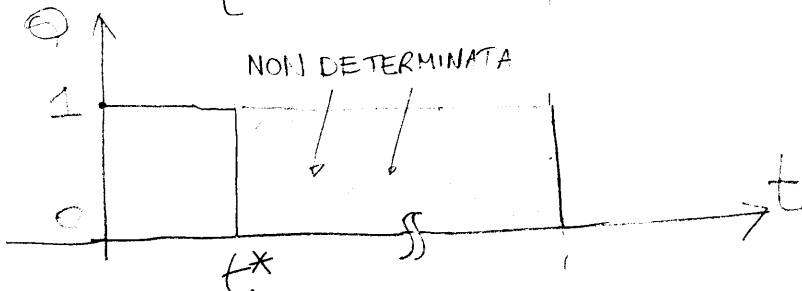 Q
NON DETERMINATA
1
0
t
t*